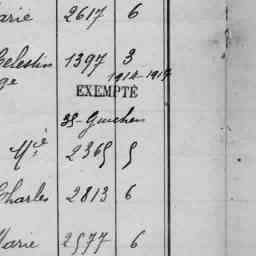 arie 2617 6
Celestin 1397 3
ge 1914-1917
EXEMPTÉ
35-Guichen
Mie 2365 5
Charles 2813 6
Marie 2577 6